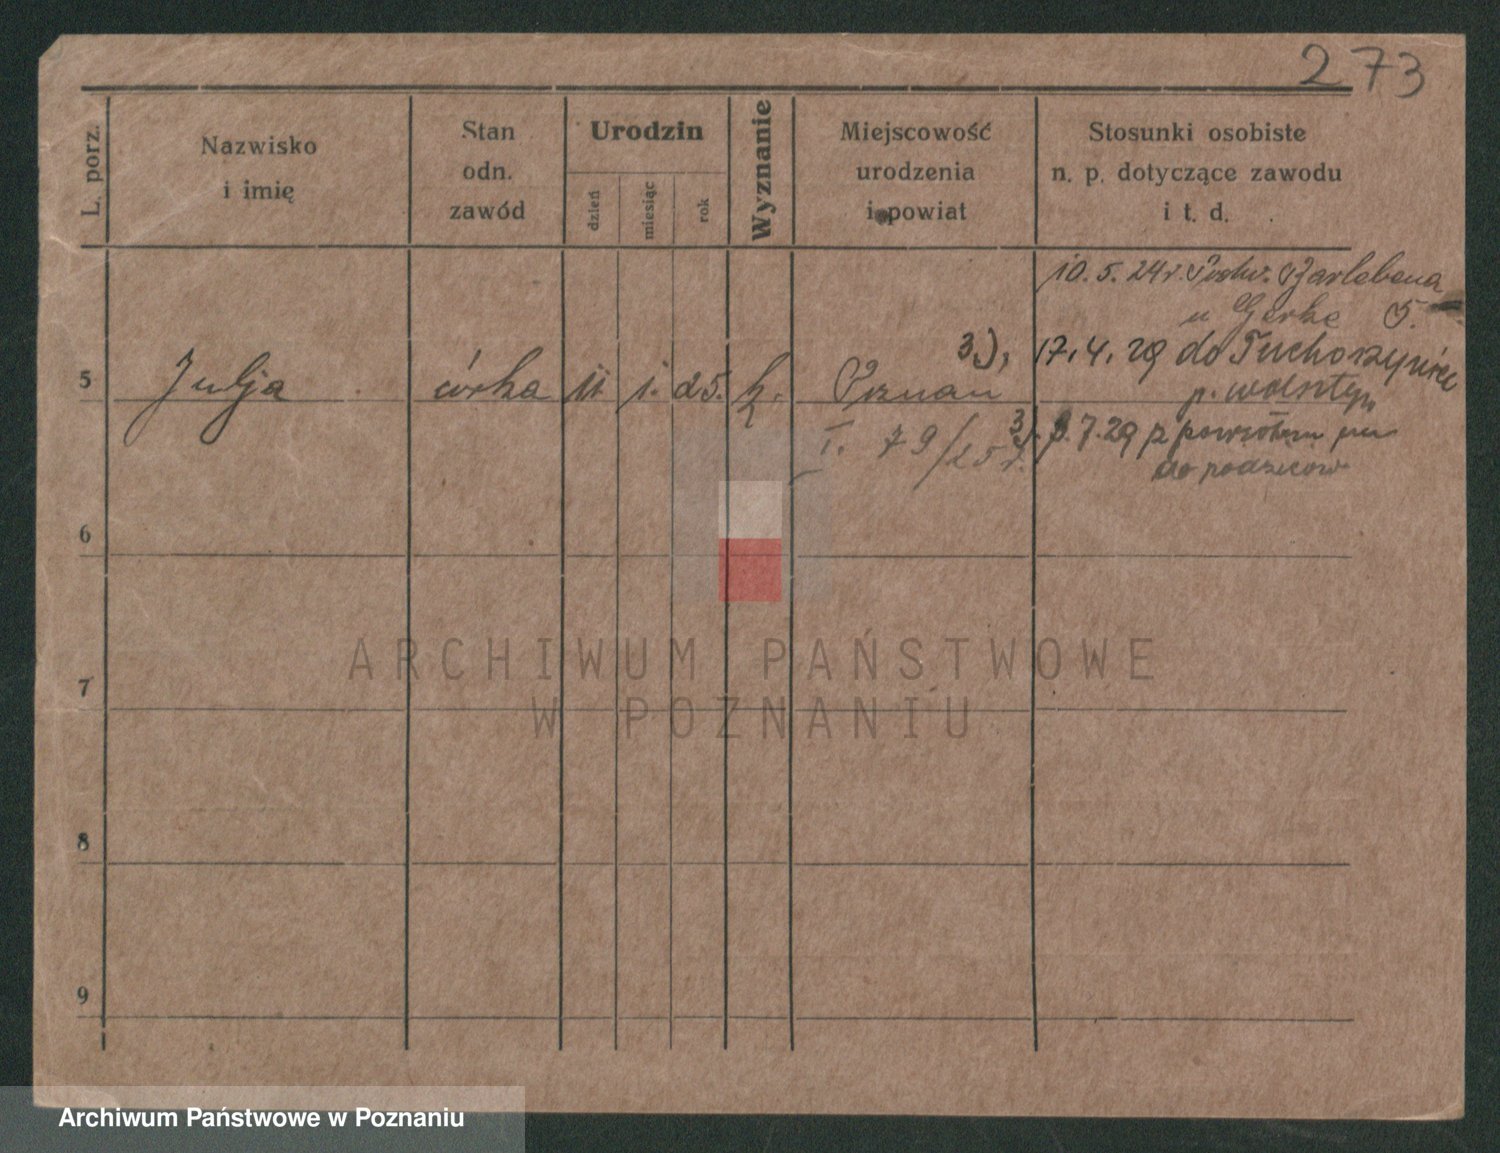 273
L. porz.
Nazwisko
i imię
Stan
odn.
zawód
Urodzin
dzień
miesiąc
rok
Wyznanie
Miejscowość
urodzenia
i powiat
Stosunki osobiste
n. p. dotyczące zawodu
i t. d.
10. 5. 24 r.
3), 17. 4. 29 do
p. wolsztyn
5 Julja córka 11. 1. 25. k. Poznań
I. 79/25 r.
3). 3. 7. 29 z powrotem
do rodziców
6
7
8
9
ARCHIWUM PAŃSTWOWE
W POZNANIU
Archiwum Państwowe w Poznaniu